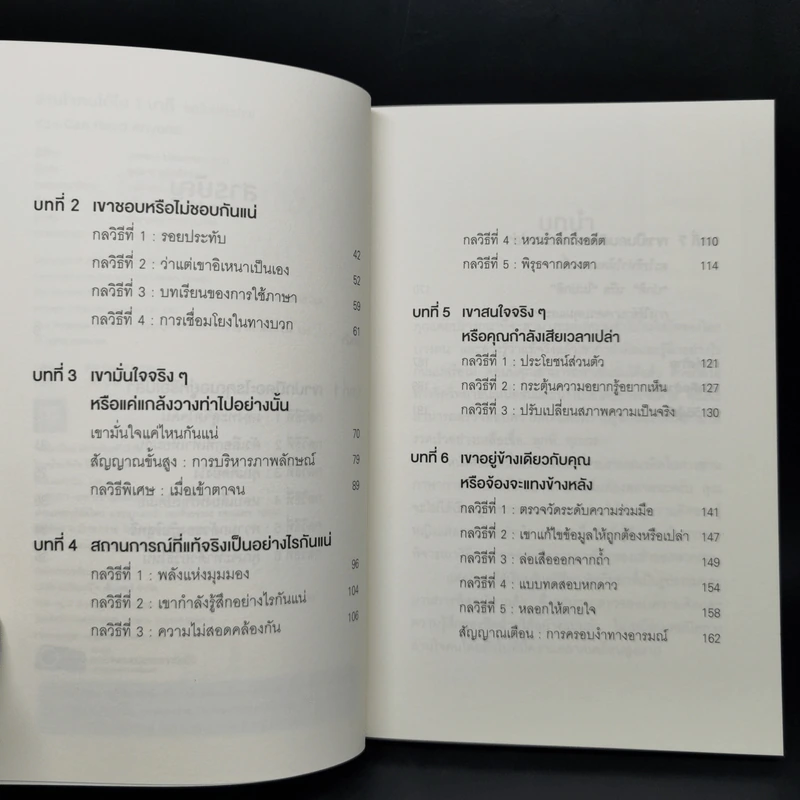 บทที่ 2 เขาชอบหรือไม่ชอบกันแน่
กลวิธีที่ 1 : รอยประทับ 42
กลวิธีที่ 2 : ว่าแต่เขาอิเหนาเป็นเอง 52
กลวิธีที่ 3 : บทเรียนของการใช้ภาษา 59
กลวิธีที่ 4 : การเชื่อมโยงในทางบวก 61
บทที่ 3 เขามั่นใจจริง ๆ
หรือแค่แกล้งวางท่าไปอย่างนั้น
เขามั่นใจแค่ไหนกันแน่ 70
สัญญาณขั้นสูง : การบริหารภาพลักษณ์ 79
กลวิธีพิเศษ : เมื่อเข้าตาจน 89
บทที่ 4 สถานการณ์ที่แท้จริงเป็นอย่างไรกันแน่
กลวิธีที่ 1 : พลังแห่งมุมมอง 96
กลวิธีที่ 2 : เขากำลังรู้สึกอย่างไรกันแน่ 104
กลวิธีที่ 3 : ความไม่สอดคล้องกัน 106
กลวิธีที่ 4 : หวนรำลึกถึงอดีต 110
กลวิธีที่ 5 : พิรุธจากดวงตา 114
บทที่ 5 เขาสนใจจริง ๆ
หรือคุณกำลังเสียเวลาเปล่า
กลวิธีที่ 1 : ประโยชน์ส่วนตัว 121
กลวิธีที่ 2 : กระตุ้นความอยากรู้อยากเห็น 127
กลวิธีที่ 3 : ปรับเปลี่ยนสภาพความเป็นจริง 130
บทที่ 6 เขาอยู่ข้างเดียวกับคุณ
หรือจ้องจะแทงข้างหลัง
กลวิธีที่ 1 : ตรวจวัดระดับความร่วมมือ 141
กลวิธีที่ 2 : เขาแก้ไขข้อมูลให้ถูกต้องหรือเปล่า 147
กลวิธีที่ 3 : ล่อเสือออกจากถ้ำ 149
กลวิธีที่ 4 : แบบทดสอบหกดาว 154
กลวิธีที่ 5 : หลอกให้ตายใจ 158
สัญญาณเตือน : การครอบงำทางอารมณ์ 162